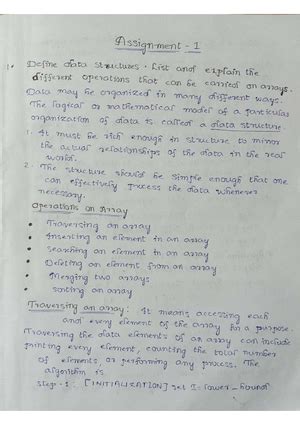 Assignment - 1
1. Define data structures. List and explain the
different operations that can be carried on arrays.
Data may be organized in many different ways.
The logical or mathematical model of a particular
organization of data is called a data structure.
1. It must be rich enough in structure to mirror
the actual relationships of the data in the real
world.
2. The structure should be simple enough that one
can effectively process the data whenever
necessary.
Operations on Array
• Traversing an array
• Inserting an element in an array
• searching an element in an array
• Deleting an element from an array
• Merging two arrays
• sorting an array
Traversing an array: It means accessing each
and every element of the array for a purpose.
Traversing the data elements of an array can include
printing every element, counting the total number
of elements or performing any process. The
algorithm is
step-1: [INITIALIZATION] set I=lower_bound